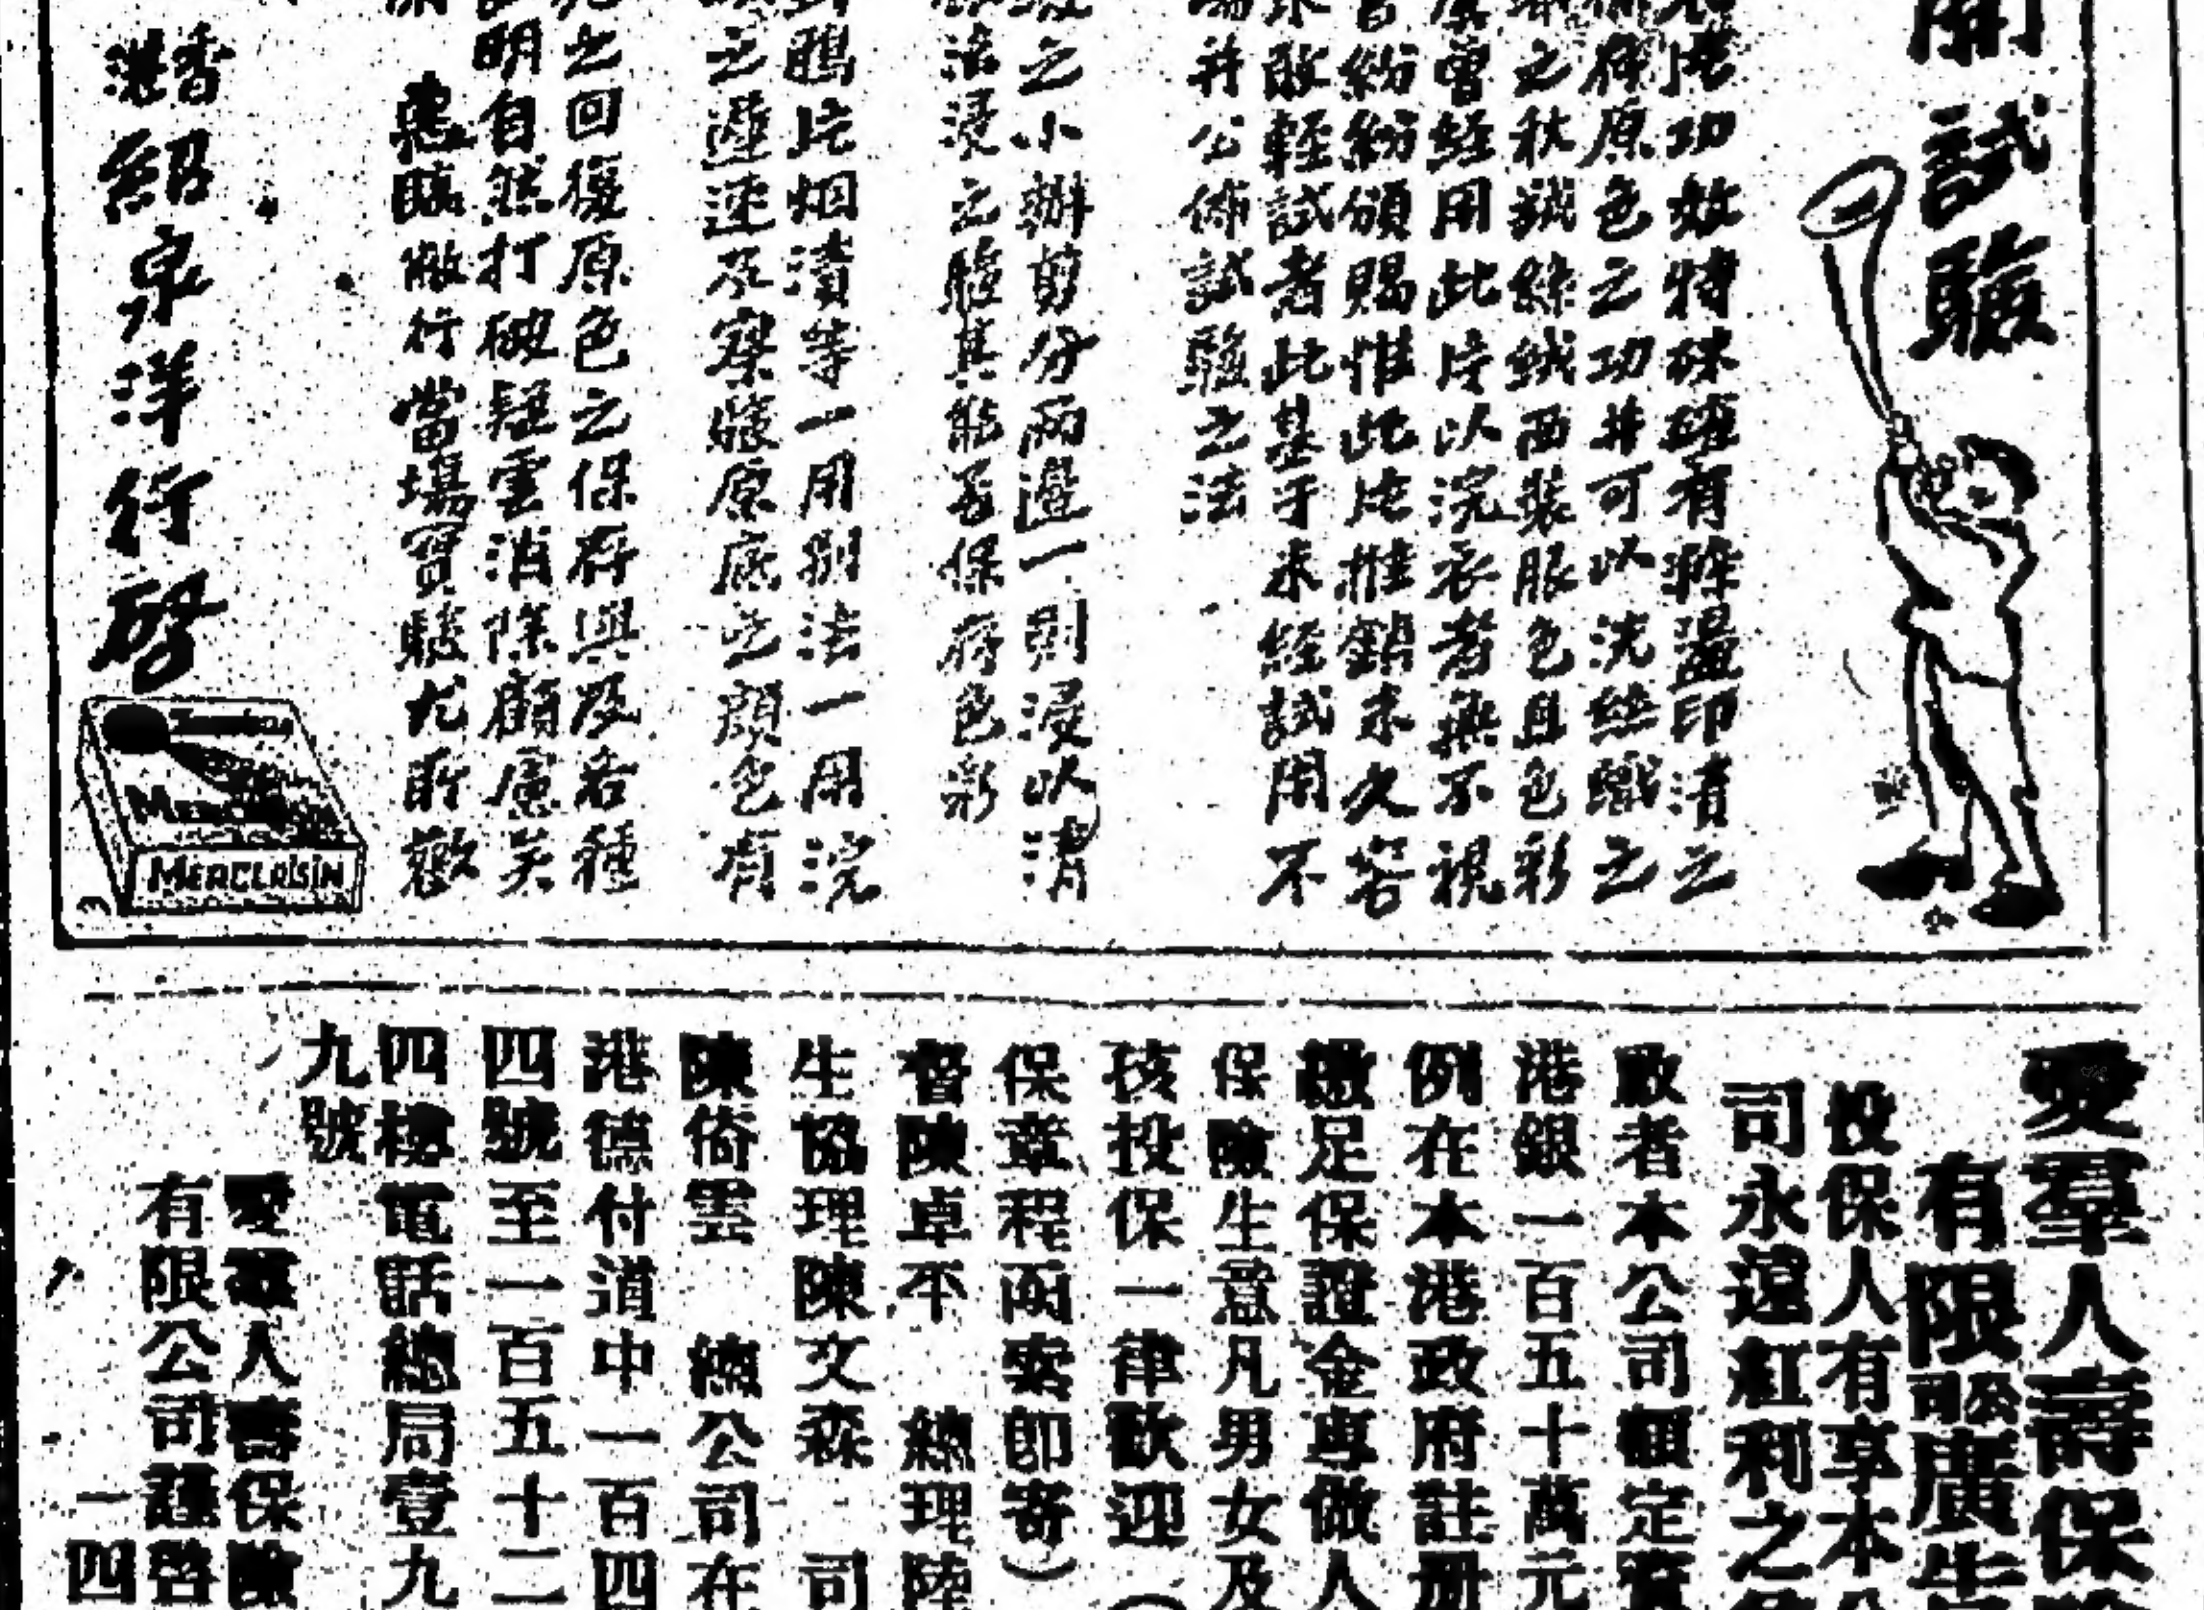 開試驗
功效特殊確有除盪印漬之
原色之功并可以洗絲織之
之秋絨絲絨西裝服色且色彩
曾經用此片以浣衣者無不視
紛紛頒賜惟此片推銷未久若
敢輕試者此基于未經試用不
并公佈試驗之法
之小辦剪分兩邊一則浸以清
浸之驗其能否保存色彩
鴉片烟漬等一用別法一用浣
之遲速及察驗原底之顏色有
之回復原色之保存與及各種
明自然打破疑雲消除顧慮矣
惠臨敝行當場實驗尤所歡
香港紹泉洋行啓
MERCERISIN
愛羣人壽保
有限公司廣告
投保人有享本
司永遠紅利之
敬者本公司額定資
港銀一百五十萬元
例在本港政府註册
繳足保證金專做人
保險生意凡男女及
孩投保一律歡迎（
保章程函索即寄）
督陳卓平　總理陸
生協理陳文森　司
陳倚雲　總公司在
港德付道中一百四
四號至一百五十二
四樓電話總局壹九
九號
愛羣人壽保險
有限公司謹啓
一四